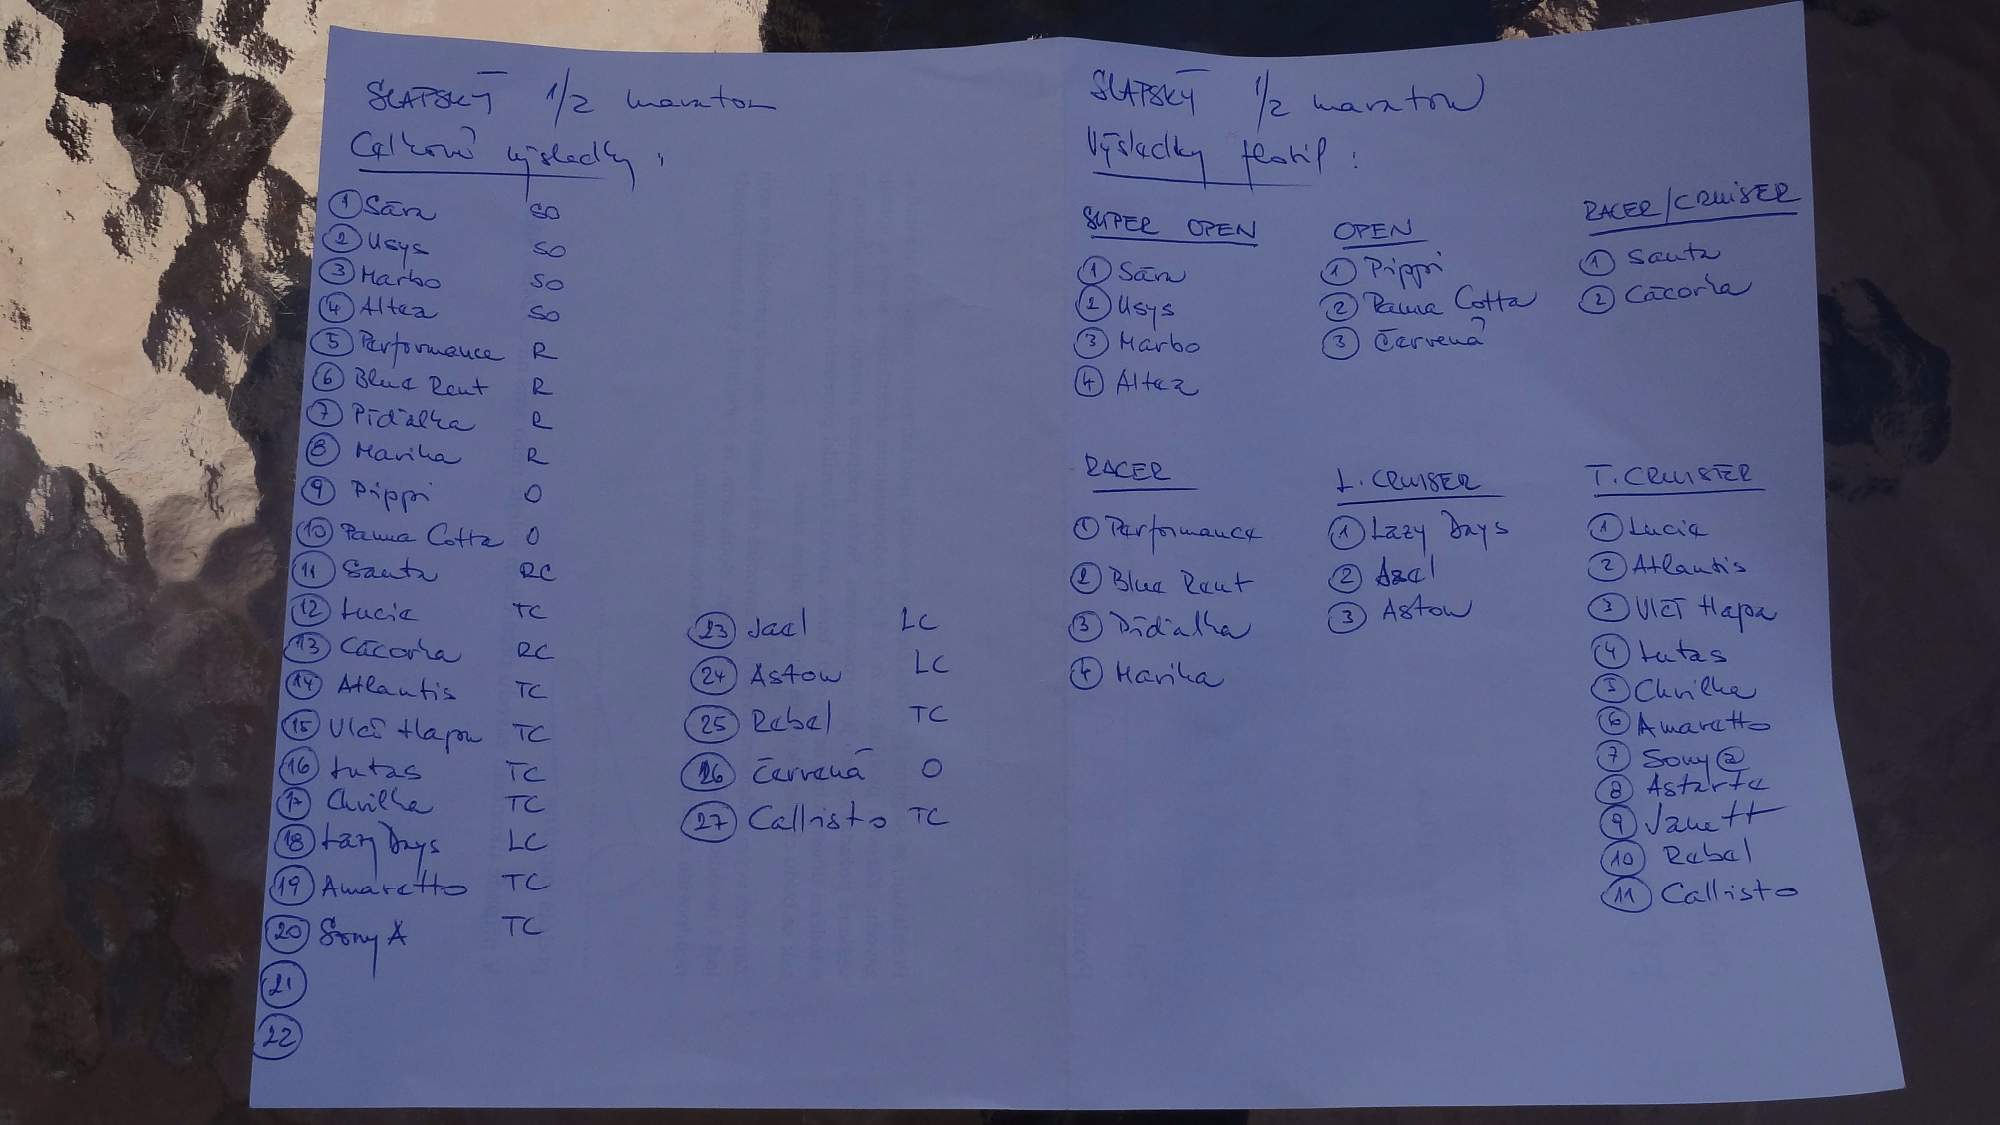 SLAPSKÝ 1/2 maraton
Celkové výsledky:
1 Sára SO
2 Usys SO
3 Marbo SO
4 Altea SO
5 Performance R
6 Blue Rent R
7 Píďalka R
8 Marika R
9 Pippi O
10 Panna Cotta O
11 Santa RC
12 Lucie TC
13 Cácorka RC
14 Atlantis TC
15 Vlčí tlapa TC
16 Lutas TC
17 Chvilka TC
18 Lazy Days LC
19 Amaretto TC
20 Sony TC
21
22
23 Jael LC
24 Aston LC
25 Rebel TC
26 Červená O
27 Callisto TC
SLAPSKÝ 1/2 maraton
Výsledky flotil:
SUPER OPEN
1 Sára
2 Usys
3 Marbo
4 Altea
OPEN
1 Pippi
2 Panna Cotta
3 Červená
RACER/CRUISER
1 Santa
2 Cácorka
RACER
1 Performance
2 Blue Rent
3 Píďalka
4 Marika
L. CRUISER
1 Lazy Days
2
3 Aston
T. CRUISTER
1 Lucie
2 Atlantis
3 Vlčí tlapa
4 Lutas
5 Chvilka
6 Amaretto
7 Sony
8 Astarte
9 Janett
10 Rebel
11 Callisto